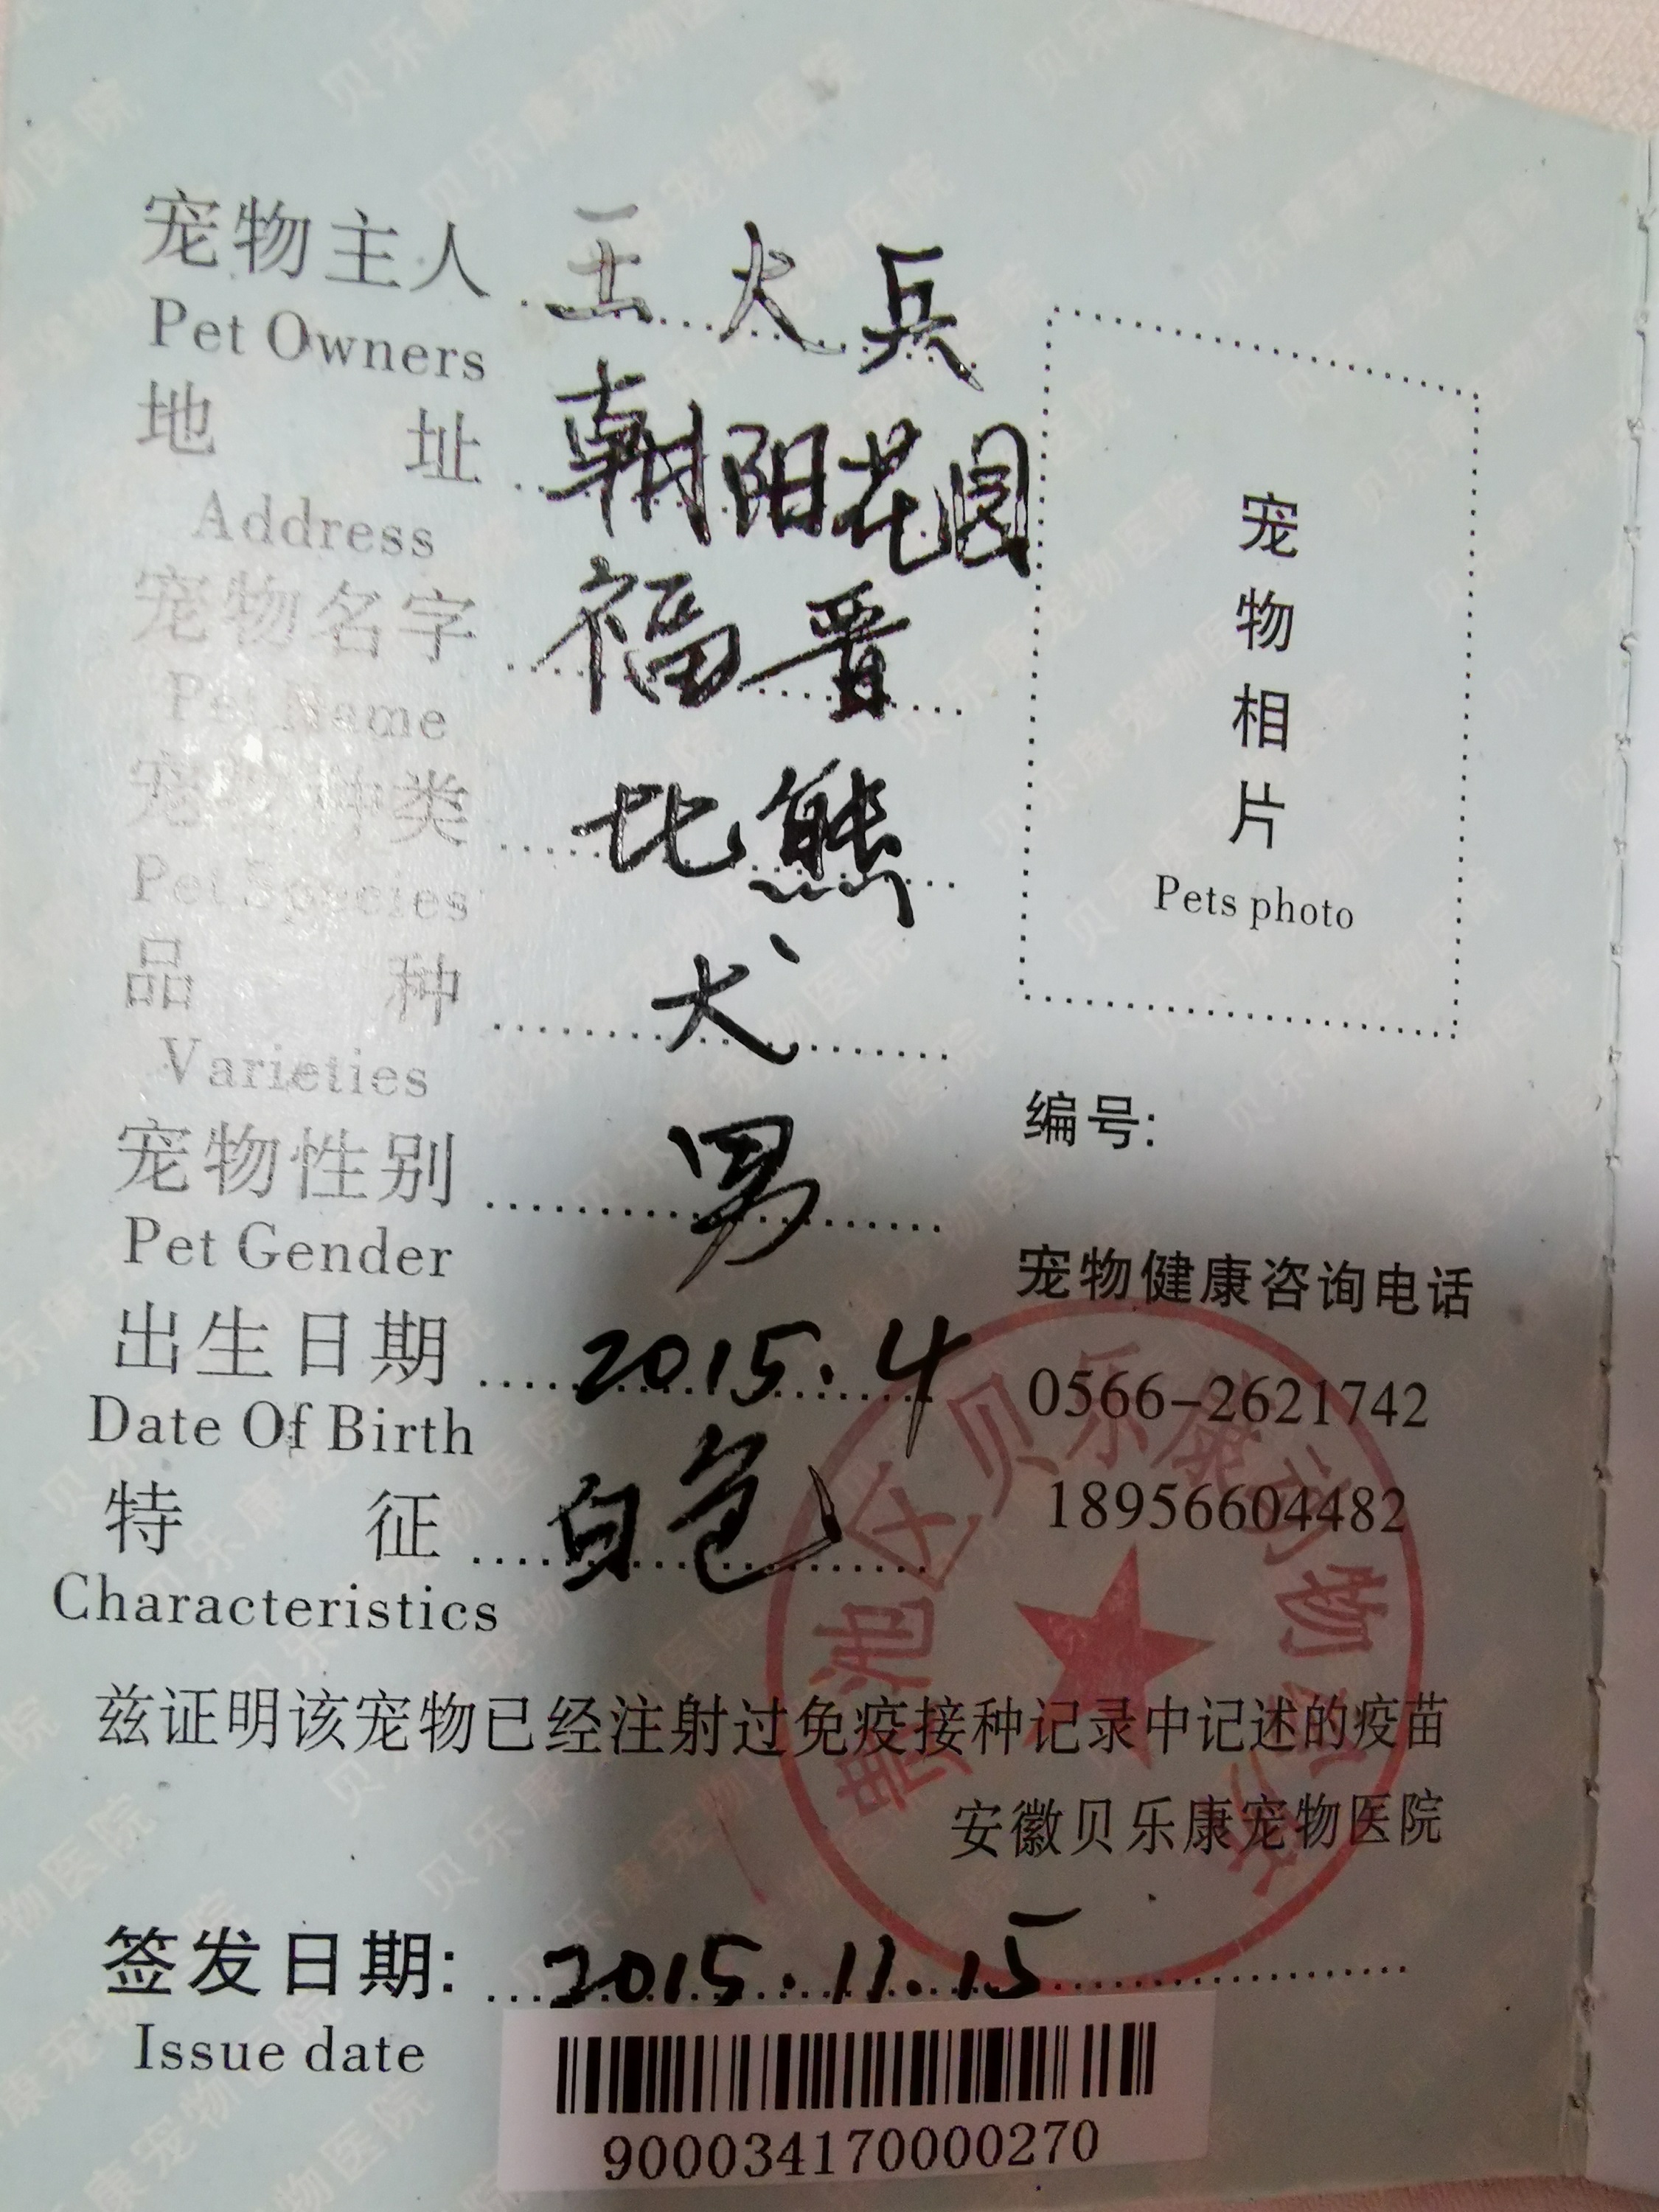 宠物主人 王大兵
Pet Owners
地 址 朝阳花园
Address
宠物名字 福晋
Pet Name
宠物种类 比熊
Pet Species
品 种 犬
Varieties
宠物性别 男
Pet Gender
出生日期 2015.4
Date Of Birth
特 征 白色
Characteristics
宠物相片
Pets photo
编号:
宠物健康咨询电话
0566-2621742
18956604482
兹证明该宠物已经注射过免疫接种记录中记述的疫苗
安徽贝乐康宠物医院
签发日期: 2015.11.15
Issue date
900034170000270
贝乐康宠物医院